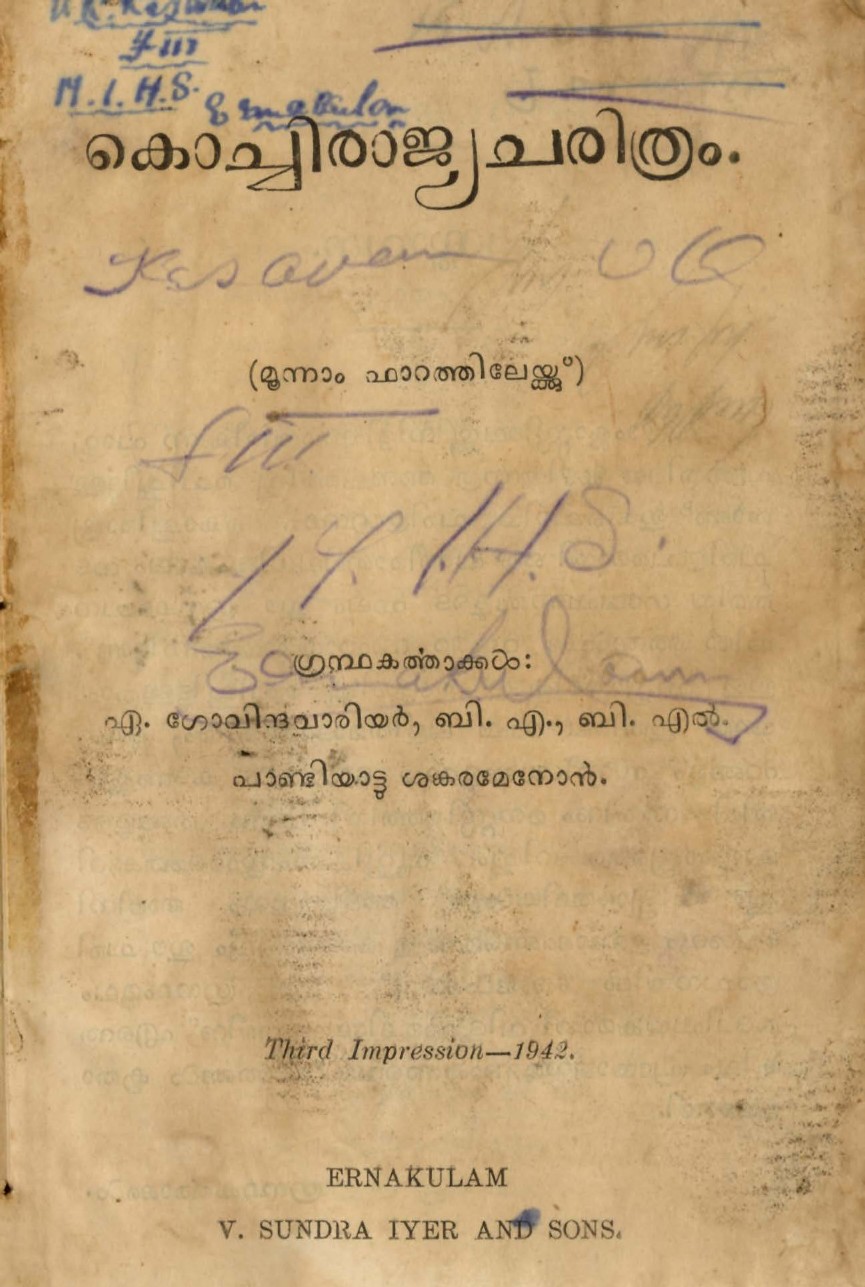 Kesavan
F III
M. I. H. S. Ernakulam
കൊച്ചിരാജ്യചരിത്രം.
Kesavan
(മൂന്നാം ഫാറത്തിലേയ്ക്ക്)
F III
H. S.
Ernakulam
ഗ്രന്ഥകർത്താക്കൾ:
ഏ. ഗോവിന്ദവാരിയർ, ബി. എ., ബി. എൽ.
പാണ്ടിയാട്ടു ശങ്കരമേനോൻ.
Third Impression—1942.
ERNAKULAM
V. SUNDRA IYER AND SONS.